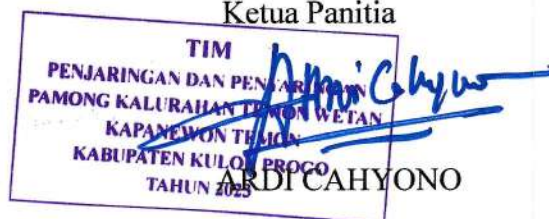 Ketua Panitia
TIM
PENJARINGAN DAN PENYARINGAN
PAMONG KALURAHAN TEMON WETAN
KAPANEWON TEMON
KABUPATEN KULON PROGO
TAHUN 2023
Ardi Cahyono
ARDI CAHYONO